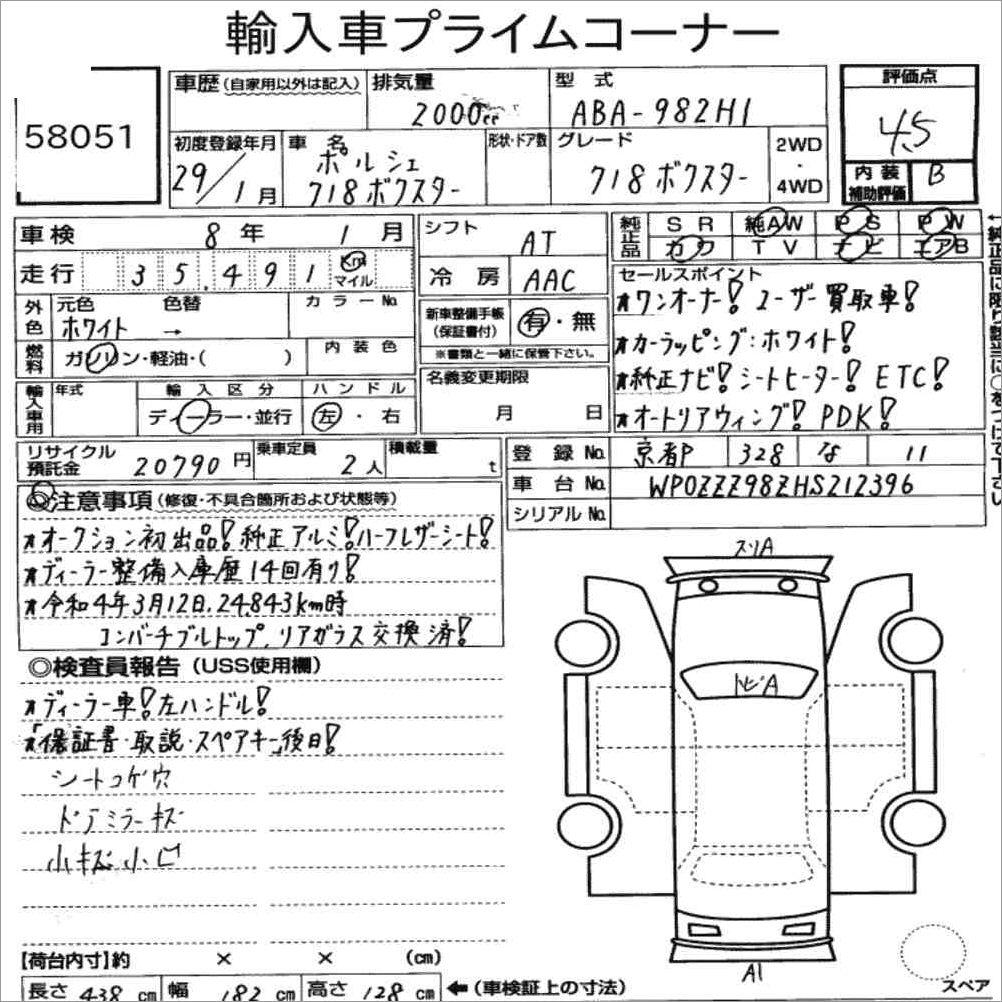 輸入車プライムコーナー
58051
車歴(自家用以外は記入) 排気量 2000cc 型式 ABA-982H1 評価点 4.5
初度登録年月 29/1月 車名 ポルシェ 718ボクスター 形状・ドア数 グレード 718ボクスター 2WD・4WD 内装補助評価 B
車検 8年 1月 シフト AT 純正品 SR 純AW PS PW
カワ TV ナビ エアB
走行 35,491 Km マイル 冷房 AAC
←純正品に限り該当に○をつけて下さい
外色 元色 ホワイト 色替 → カラーNo.
新車整備手帳(保証書付) 有・無
※書類と一緒に保管下さい。
燃料 ガソリン・軽油・( ) 内装色
輸入車用 年式 輸入区分 ディーラー・並行 ハンドル 左・右
名義変更期限 月 日
セールスポイント
★ワンオーナー! ユーザー買取車!
★カーラッピング:ホワイト!
★純正ナビ! シートヒーター! ETC!
★オートリアウィング! PDK!
リサイクル預託金 20790円 乗車定員 2人 積載量 t
登録No. 京都 328 な 11
車台No. WP0ZZZ98ZHS212396
シリアルNo.
◎注意事項(修復・不具合箇所および状態等)
★オークション初出品! 純正アルミ! ハーフレザーシート!
★ディーラー整備入庫歴14回有り!
★令和4年3月12日.24843km時
コンバーチブルトップ、リアガラス交換済!
◎検査員報告(USS使用欄)
★ディーラー車! 左ハンドル!
★「保証書・取説・スペアキー」後日!
シートコゲ穴
ドアミラーキズ
小キズ小凹
スリA
トビA
A1
スペア
【荷台内寸】約 × × (cm)
長さ 438cm 幅 182cm 高さ 128cm ←(車検証上の寸法)